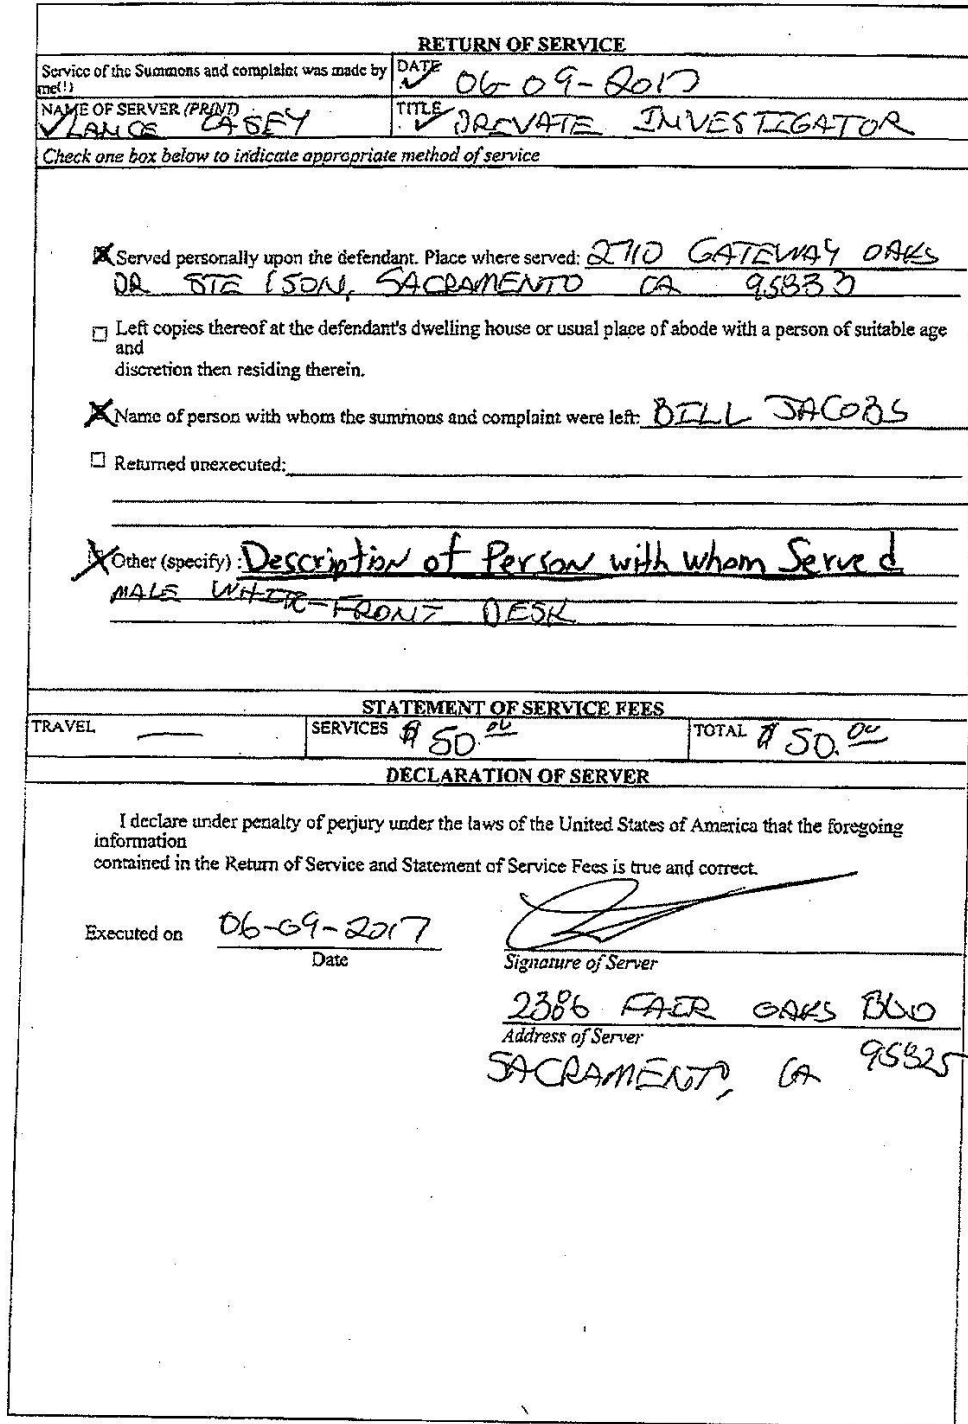 RETURN OF SERVICE
Service of the Summons and complaint was made by me(1) DATE 06-09-2017
NAME OF SERVER (PRINT) LANCE CASEY TITLE PRIVATE INVESTIGATOR
Check one box below to indicate appropriate method of service
Served personally upon the defendant. Place where served: 2710 GATEWAY OAKS
DR STE 150N, SACRAMENTO CA 95833
Left copies thereof at the defendant's dwelling house or usual place of abode with a person of suitable age
and
discretion then residing therein.
Name of person with whom the summons and complaint were left: BILL JACOBS
Returned unexecuted:
Other (specify) : Description of Person with whom Served
MALE WHITE-FRONT DESK
STATEMENT OF SERVICE FEES
TRAVEL — SERVICES $ 50.00 TOTAL $ 50.00
DECLARATION OF SERVER
I declare under penalty of perjury under the laws of the United States of America that the foregoing
information
contained in the Return of Service and Statement of Service Fees is true and correct.
Executed on 06-09-2017
Date
Signature of Server
2386 FAIR OAKS BLVD
Address of Server
SACRAMENTO, CA 95825